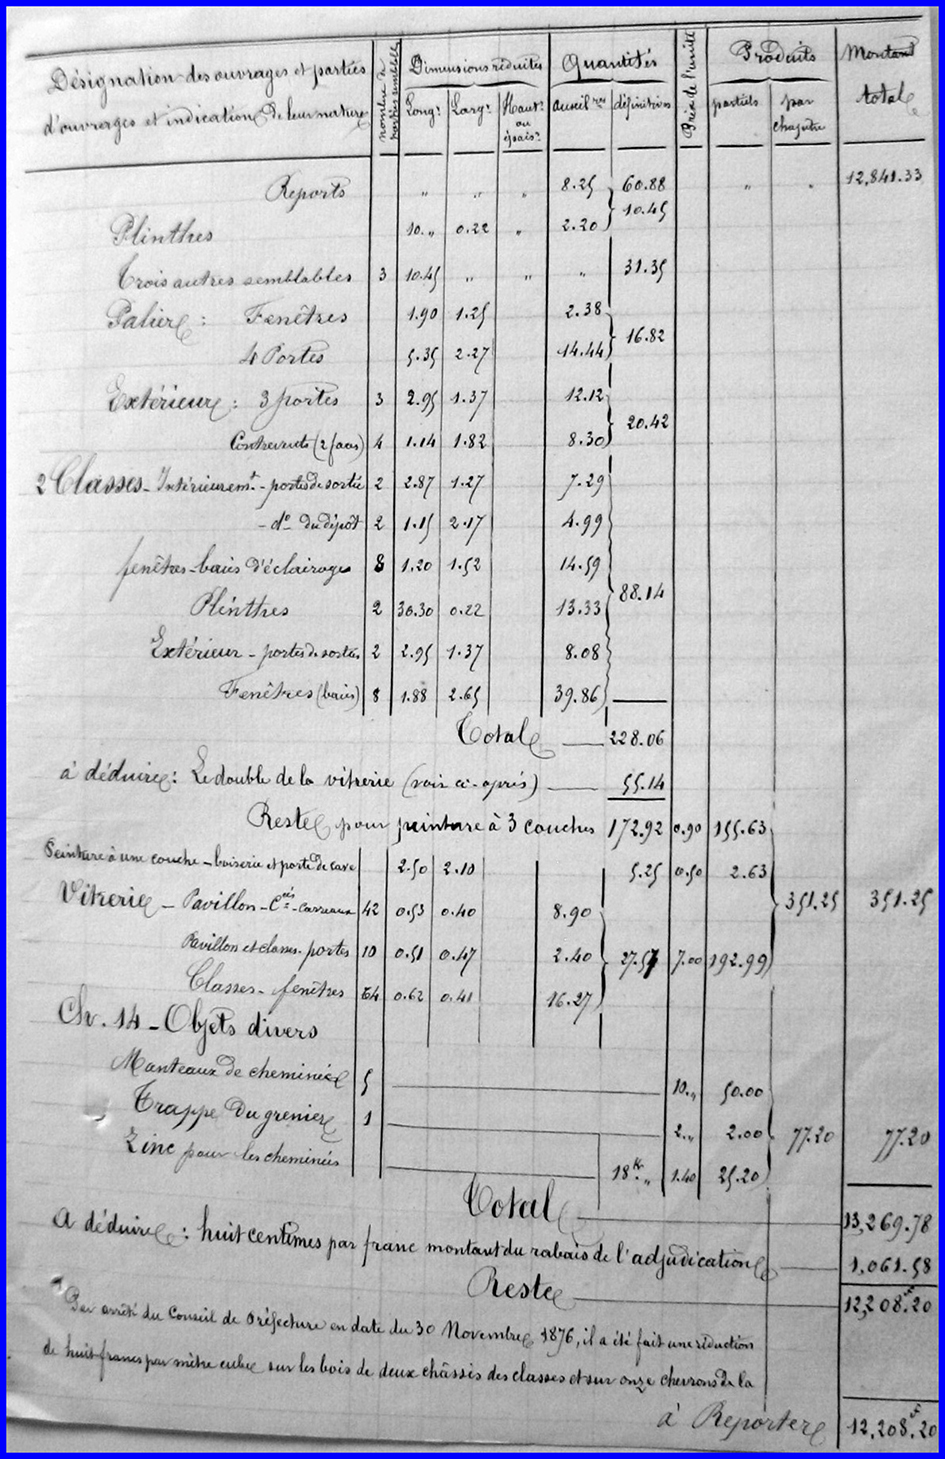 Désignation des ouvrages et parties d'ouvrages et indication de leur nature | nombre de parties semblables | Dimensions réduites | Quantités | Prix de l'unité | Produits | Montant total
Longr | Largr | Hautr ou épaisr | auxilres | définitives | partiels | par chapitre
Reports " " " 8.25 60.88 " " 12,841.33
Plinthes 10." 0.22 " 2.20 10.45
Trois autres semblables 3 10.45 " " " 31.35
Palier : Fenêtres 1.90 1.25 2.38
4 Portes 5.35 2.27 14.44 16.82
Extérieur : 3 portes 3 2.95 1.37 12.12
Contrevents (2 faces) 4 1.14 1.82 8.30 20.42
2 Classes - Intérieuremt - portes de sortie 2 2.87 1.27 7.29
- do du dépôt 2 1.15 2.17 4.99
fenêtres - baies d'éclairage 8 1.20 1.52 14.59
Plinthes 2 30.30 0.22 13.33 88.14
Extérieur - portes de sorties 2 2.95 1.37 8.08
Fenêtres (baies) 8 1.88 2.65 39.86
Total 228.06
à déduire : Le double de la vitrerie (voir ci-après) 55.14
Reste pour peinture à 3 couches 172.92 0.90 155.63
Peinture à une couche - boiserie et porte de cave 2.50 2.10 5.25 0.50 2.63
Vitrerie - Pavillon - Cées - carreaux 42 0.53 0.40 8.90 351.25 351.25
Pavillon et classes - portes 10 0.51 0.47 2.40 27.57 7.00 192.99
Classes - fenêtres 64 0.62 0.41 16.27
Ch. 14 - Objets divers
Manteaux de cheminée 5 10." 50.00
Trappe du grenier 1 2." 2.00 77.20 77.20
Zinc pour les cheminées 18k." 1.40 25.20
Total 13,269.78
A déduire : huit centimes par franc montant du rabais de l'adjudication 1,061.58
Reste 12,208.20
Par arrêté du Conseil de Préfecture en date du 30 Novembre 1876, il a été fait une réduction
de huit francs par mètre cube sur les bois de deux châssis des classes et sur onze chevrons de la
à Reporter 12,208.20